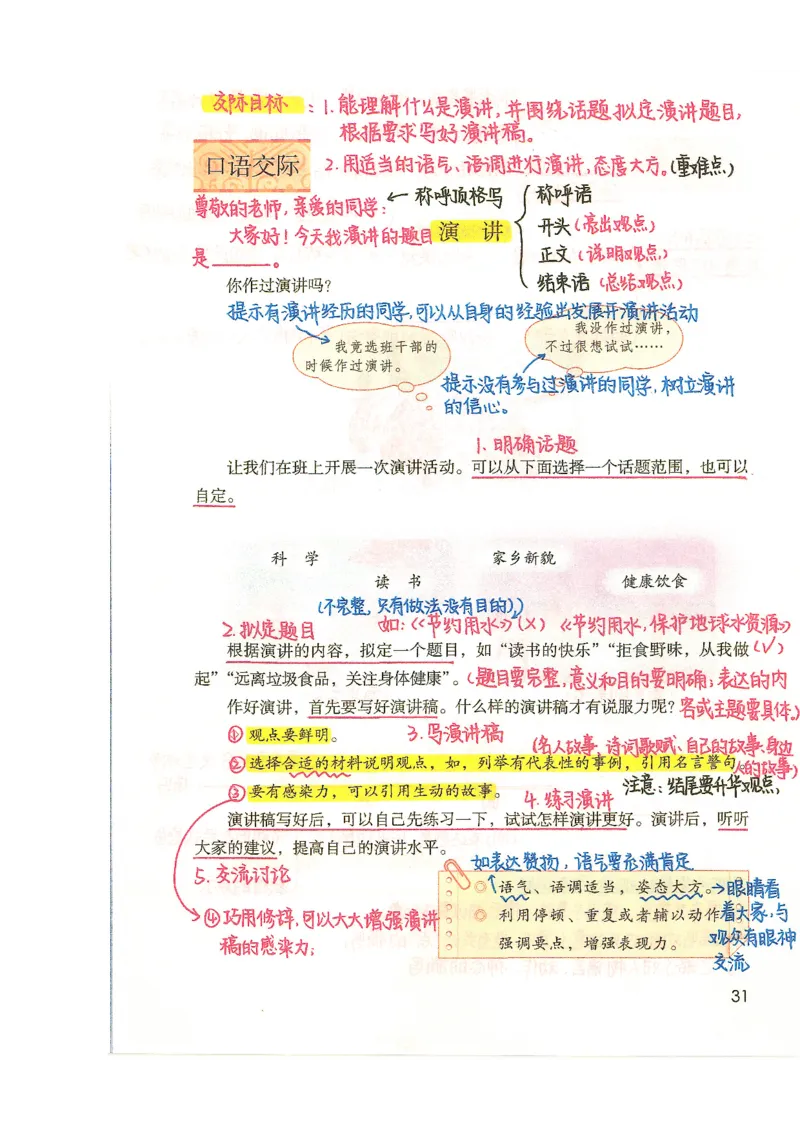 交际目标：1.能理解什么是演讲，并围绕话题拟定演讲题目，
根据要求写好演讲稿。
口语交际
2.用适当的语气、语调进行演讲，态度大方。(重难点)
尊敬的老师，亲爱的同学：
←称呼顶格写
大家好！今天我演讲的题目
是______。
演 讲
称呼语
开头(亮出观点)
正文(说明观点)
结束语(总结观点)
你作过演讲吗？
提示有演讲经历的同学，可以从自身的经验出发展开演讲活动
我竞选班干部的
时候作过演讲。
我没作过演讲，
不过很想试试……
提示没有参与过演讲的同学，树立演讲
的信心。
1.明确话题
让我们在班上开展一次演讲活动。可以从下面选择一个话题范围，也可以
自定。
科 学
家乡新貌
读 书
健康饮食
(不完整，只有做法没有目的)
2.拟定题目
如：《节约用水》(×)《节约用水，保护地球水资源》
(√)
根据演讲的内容，拟定一个题目，如“读书的快乐”“拒食野味，从我做
起”“远离垃圾食品，关注身体健康”。
(题目要完整，意义和目的要明确；表达的内
容或主题要具体。)
作好演讲，首先要写好演讲稿。什么样的演讲稿才有说服力呢？
①观点要鲜明。
3.写演讲稿
(名人故事、诗词歌赋、自己的故事、身边
人的故事)
②选择合适的材料说明观点，如，列举有代表性的事例，引用名言警句。
③要有感染力，可以引用生动的故事。
4.练习演讲
注意：结尾要升华观点，
演讲稿写好后，可以自己先练习一下，试试怎样演讲更好。演讲后，听听
大家的建议，提高自己的演讲水平。
5.交流讨论
如表达赞扬，语气要充满肯定
语气、语调适当，姿态大方。
利用停顿、重复或者辅以动作
强调要点，增强表现力。
→眼睛看
着大家，与
观众有眼神
交流
④巧用修辞，可以大大增强演讲
稿的感染力；
31